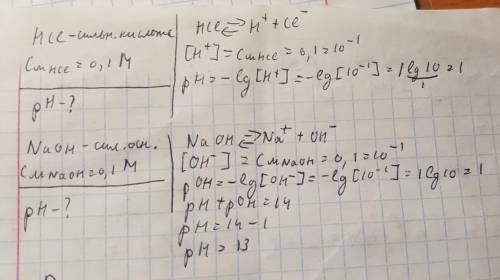 HCl-сильн. кислота
Cм HCl = 0,1 M
pH-?
HCl ⇄ H⁺ + Cl⁻
[H⁺] = Cм HCl = 0,1 = 10⁻¹
pH = -lg[H⁺] = -lg[10⁻¹] = 1 lg 10 = 1
1
NaOH - сил. осн.
Cм NaOH = 0,1 M
pH-?
NaOH ⇄ Na⁺ + OH⁻
[OH⁻] = Cм NaOH = 0,1 = 10⁻¹
pOH = -lg[OH⁻] = -lg[10⁻¹] = 1 lg 10 = 1
pH + pOH = 14
pH = 14 - 1
pH = 13